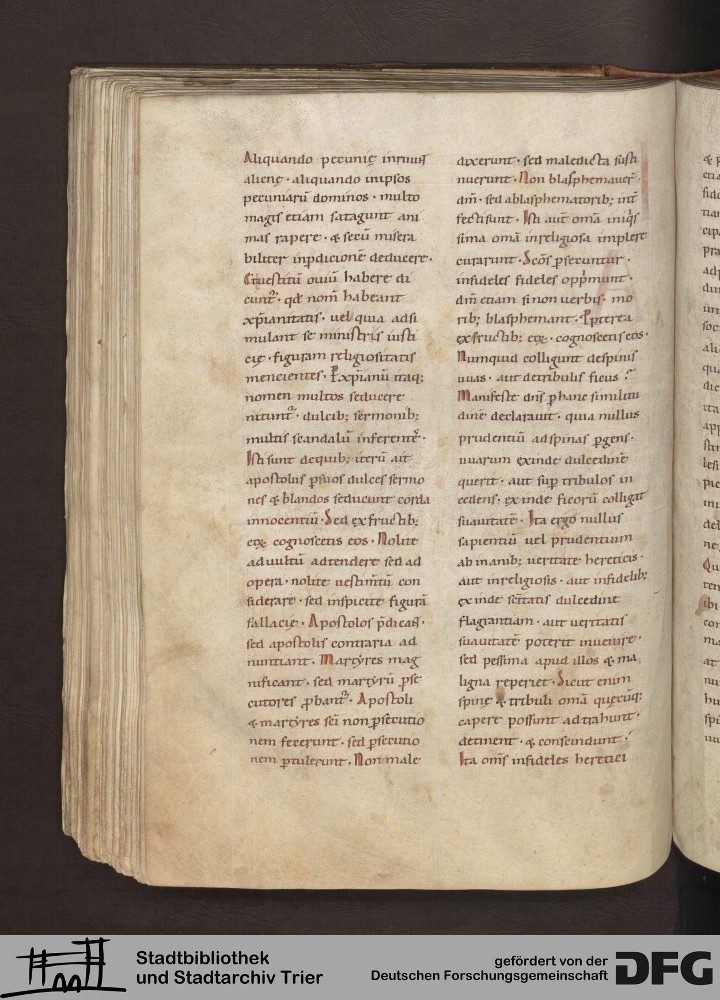 Aliquando pecunię inruunt
alienę · aliquando inipsos
pecuniarū dominos · multo
magis etiam satagunt ani
mas rapere · & secū misera
biliter inpdicionē deducere ·
habere di
qđ nom̄ habeant
xp̄ianitatis · vel quia adsi
mulant se ministris iusti
cię · figuram religiositatis
mencientes · xp̄ianū itaq;
nomen multos seducere
dulcib; sermonib;
multis scandalū
Isti sunt dequib; iterū ait
apostolus p suos dulces sermo
nes & blandos seducunt corda
innocentiū · Sed ex fructib;
cognoscetis eos · Nolite
ad vultū adtendere sed ad
opera · nolite con
siderare · sed inspicite figurā
fallacię · Apostolos
sed apostolis contraria ad
nuntiant · Martyres mag
nificant · sed martyrū pse
cutores · Apostoli
& martyres sc̄i non psecutio
nem fecerunt · sed psecutio
nem ptulerunt · Non male
dixerunt · sed maledicta susti
nuerunt · Non
dm̄ · sed ablasphematorib;
Isti aut̄ omā
sima omā inreligiosa implere
curarunt · Sc̄os psecuntur ·
infideles fideles ·
dm̄ etiam si non verbis · mo
rib; blasphemant · Ppterea
ex fructib; cognoscetis eos ·
Numquid colligunt despinis
uuas · aut detribulis ficus ?
Manifeste dn̄s p hanc similitu
dinē declarauit · quia nullus
prudentiū ad spinas pgens ·
uuarum exinde dulcedinē
querit · aut sup tribulos in
cedens · exinde ficorū colligat
suauitatē · Ita ergo nullus
sapientiū vel prudentium
ab inanib; veritate hereticis ·
aut inreligiosis · aut infidelib;
exinde dulcedinē
flagrantiam · aut veritatis
suauitatē poterit invenire ·
sed pessima apud illos & ma
ligna reperiet · Sicut enim
spinę & tribuli omā quęcūq;
capere possunt adtrahunt ·
detinent · & conscindunt ·
Ita oms̄ infideles heretici
Stadtbibliothek
und Stadtarchiv Trier
gefördert von der
Deutschen Forschungsgemeinschaft
DFG